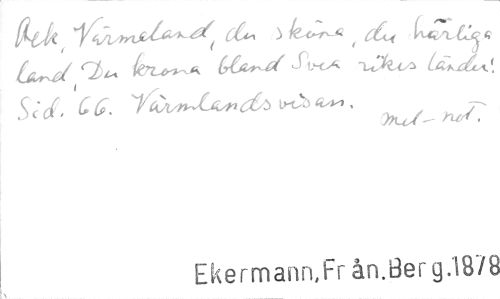 Ack, Värmeland, du sköna, du härliga
land, Du krona bland Svea rikes länder!
Sid. 66. Värmlandsvisan.
mel-not.
Ekermann,Från.Berg.1878